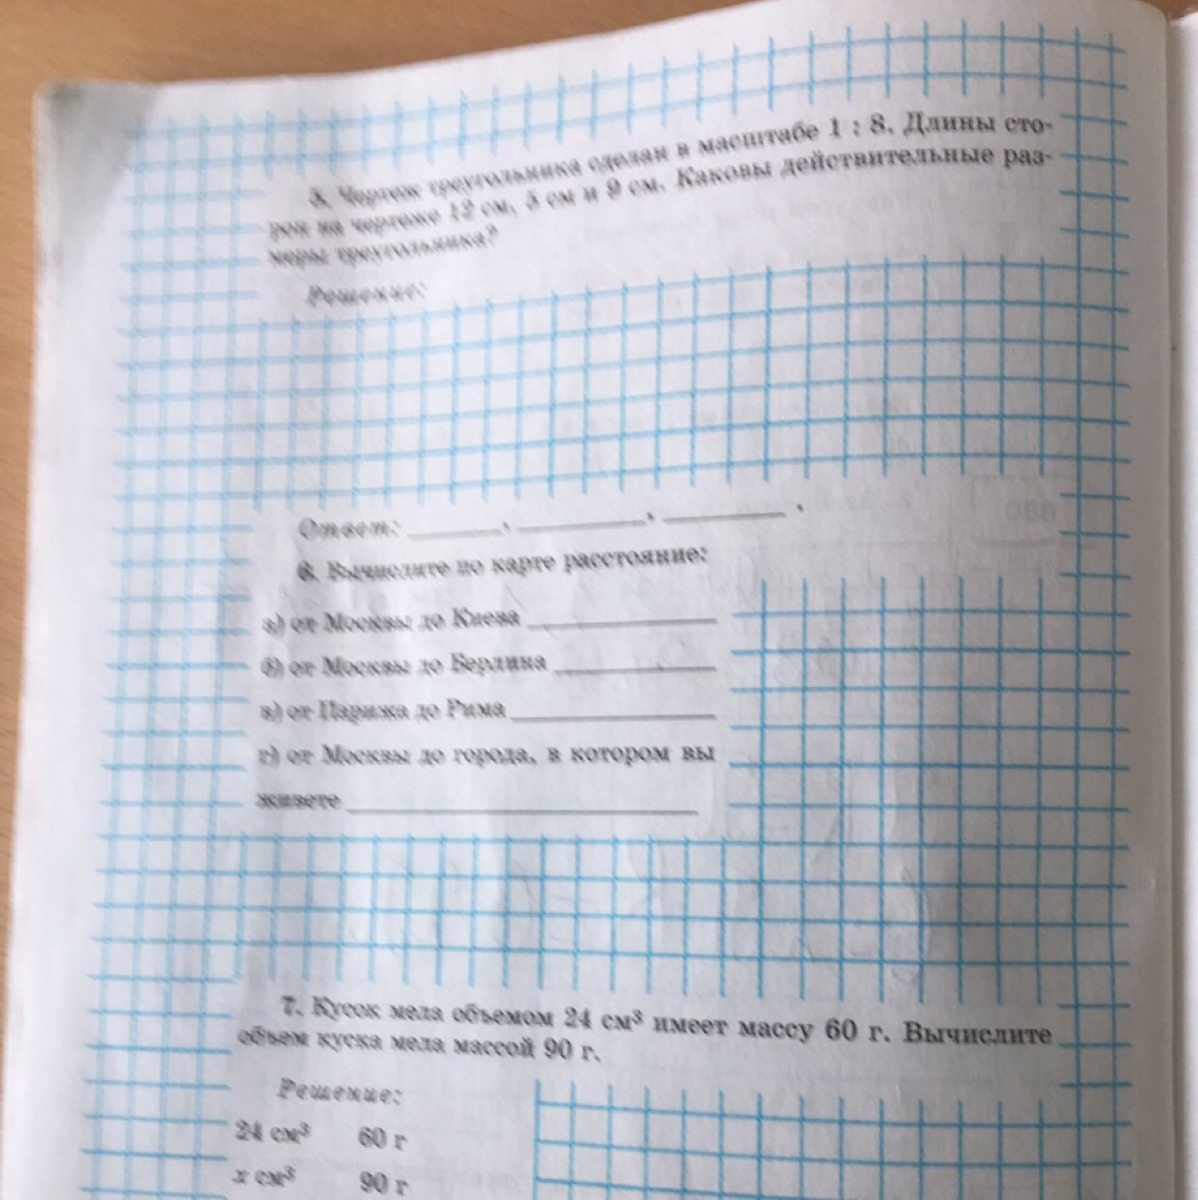 5. Чертеж треугольника сделан в масштабе 1 : 8. Длины сто-
рон на чертеже 12 см, 5 см и 9 см. Каковы действительные раз-
меры треугольника?
Решение:
Ответ: ________, ________, ________ .
6. Вычислите по карте расстояние:
а) от Москвы до Киева ________
б) от Москвы до Берлина ________
в) от Парижа до Рима ________
г) от Москвы до города, в котором вы
живете ________
7. Кусок мела объемом 24 см³ имеет массу 60 г. Вычислите
объем куска мела массой 90 г.
Решение:
24 см³ 60 г
x см³ 90 г